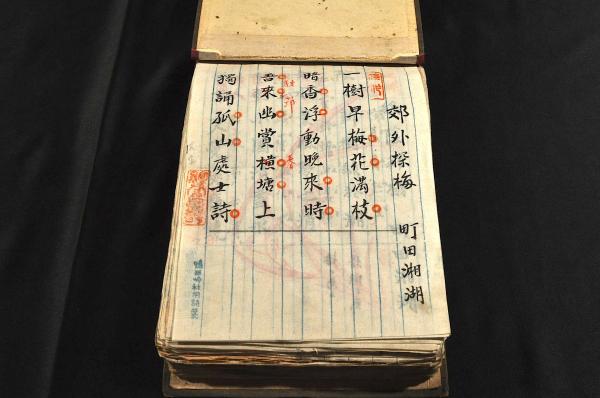 郊外探梅
町田湘湖
一樹早梅花滿枝
暗香浮動晚來時
吾來幽賞橫塘上
獨誦孤山處士詩